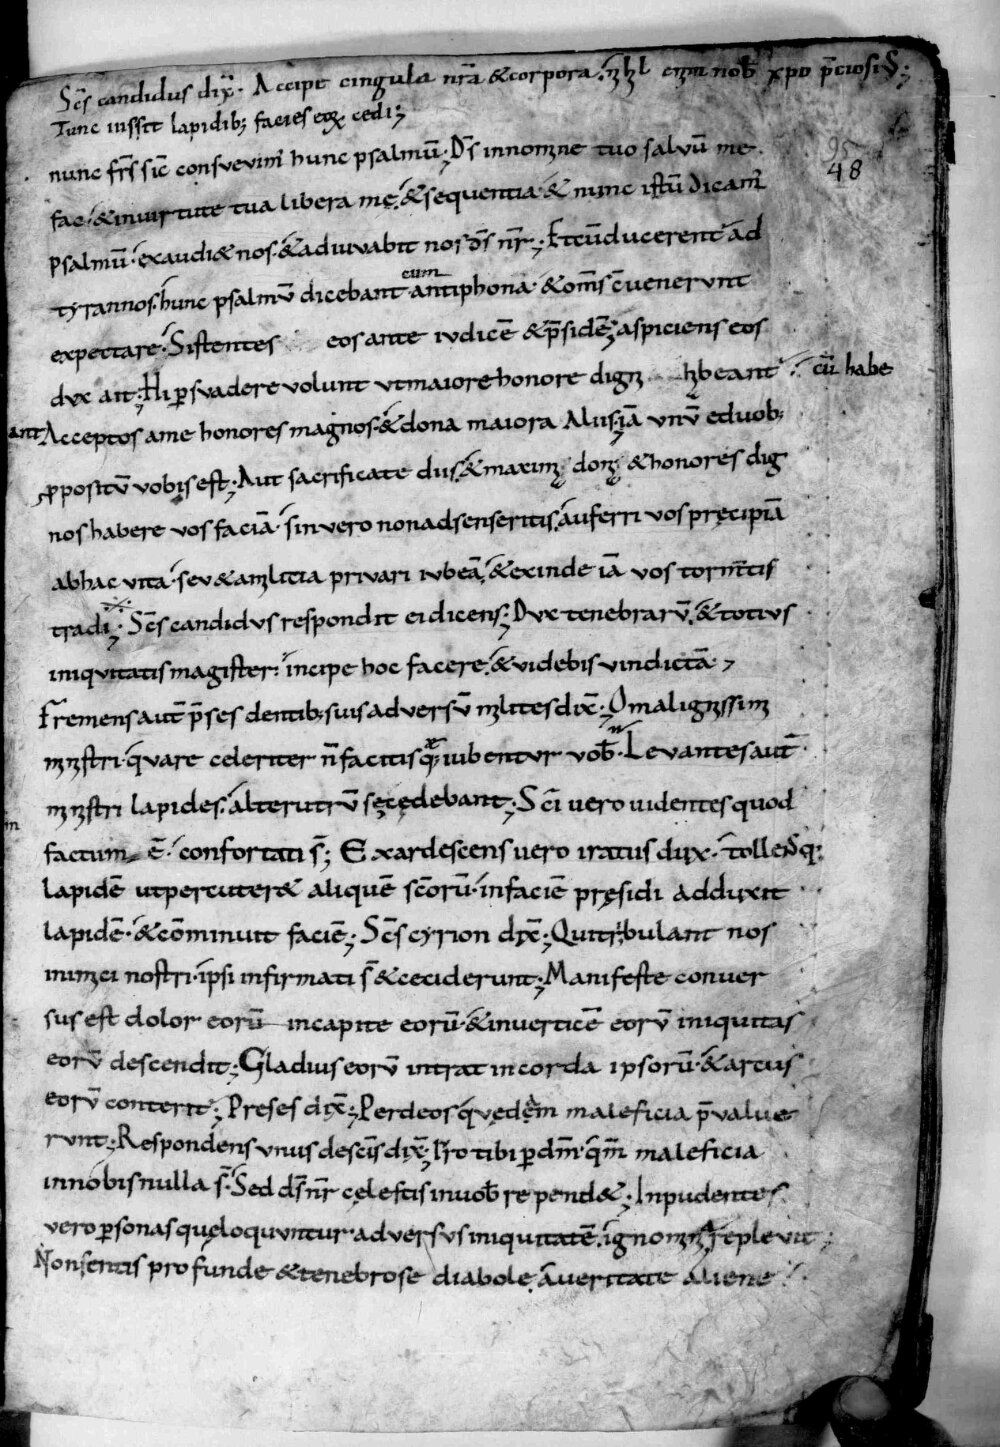 Scs candidus dix̄. Accipe cingula nr̄a & corpora. nihil enim nob̄ xp̄o p̄ciosiꝰ;
Tunc iussit lapidib; facies eoꝝ cedi;
nunc frs̄ sic̄ consuevim̄ hunc psalmū; Ds̄ innomine tuo salvū me
fac. & invirtute tua libera me. & sequentia. & nunc istū dicam̄
psalmū. exaudi& nos. & adiuvabit nos ds̄ nr̄; Et cū ducerent ad
cum
tyrannos. hunc psalmū dicebant antiphona. & om̄s c̄uenerunt
expectare. Sistentes eos ante iudicē & p̄sidē; aspiciens eos
dux ait; Hi ꝑsuadere volunt ut maiore honore digni habeant cū habe
ant Acceptos ame honores magnos. & dona maiora Aliis; iā unū eduob;
ꝓpositū vobis est; Aut sacrificate diis, & maximi doni & honores dig
nos habere vos faciā. sin vero non adsenseritis, auferri vos pręcipiā
abhac vita. seu & amilitia privari iubeā, & exinde iā vos torm̄tis
tradi; Scs̄ candidus respondit ei dicens; Dux tenebrarū, & totius
iniquitatis magister: incipe hoc facere, & videbis vindictā;
Fremens aut̄ p̄ses dentib; suis adversū milites dix̄; O malignissimi
ministri. quare celeriter n̄ facitis q̄ iubentur vob̄. Levantes aut̄
ministri lapides. alterutrū sęcędebant; Sci vero videntes quod
in factum ē. confortati s̄; Exardescens vero iratus dux. tollensq;
lapidē ut percuter& aliquē sc̄orū. infaciē pręsidi adduxit
lapidē. & cōminuit faciē; Scs̄ cyrion dix̄; Qui tribulant nos
inimici nostri. ipsi infirmati s̄ & ceciderunt; Manifeste conver
sus est dolor eorū incapite eorū. & inverticē eorū iniquitas
eorū descendit; Gladius eorū intrat incorda ipsorū. & arcus
eorū conterit; Preses dix̄; Perdeos quędem̄ maleficia p̄value
runt; Respondens unus descis̄ dix̄; Pro tibi ꝑdm̄. qm̄ maleficia
innobis nulla s̄. Sed ds̄ nr̄ cęlestis invob̄ repend&; Inpudentes
vero ꝑsonas quę loquuntur adversus iniquitatē. ignominia replevit;
Non sentis profunde & tenebrose diabole, averitate aliene
95
48